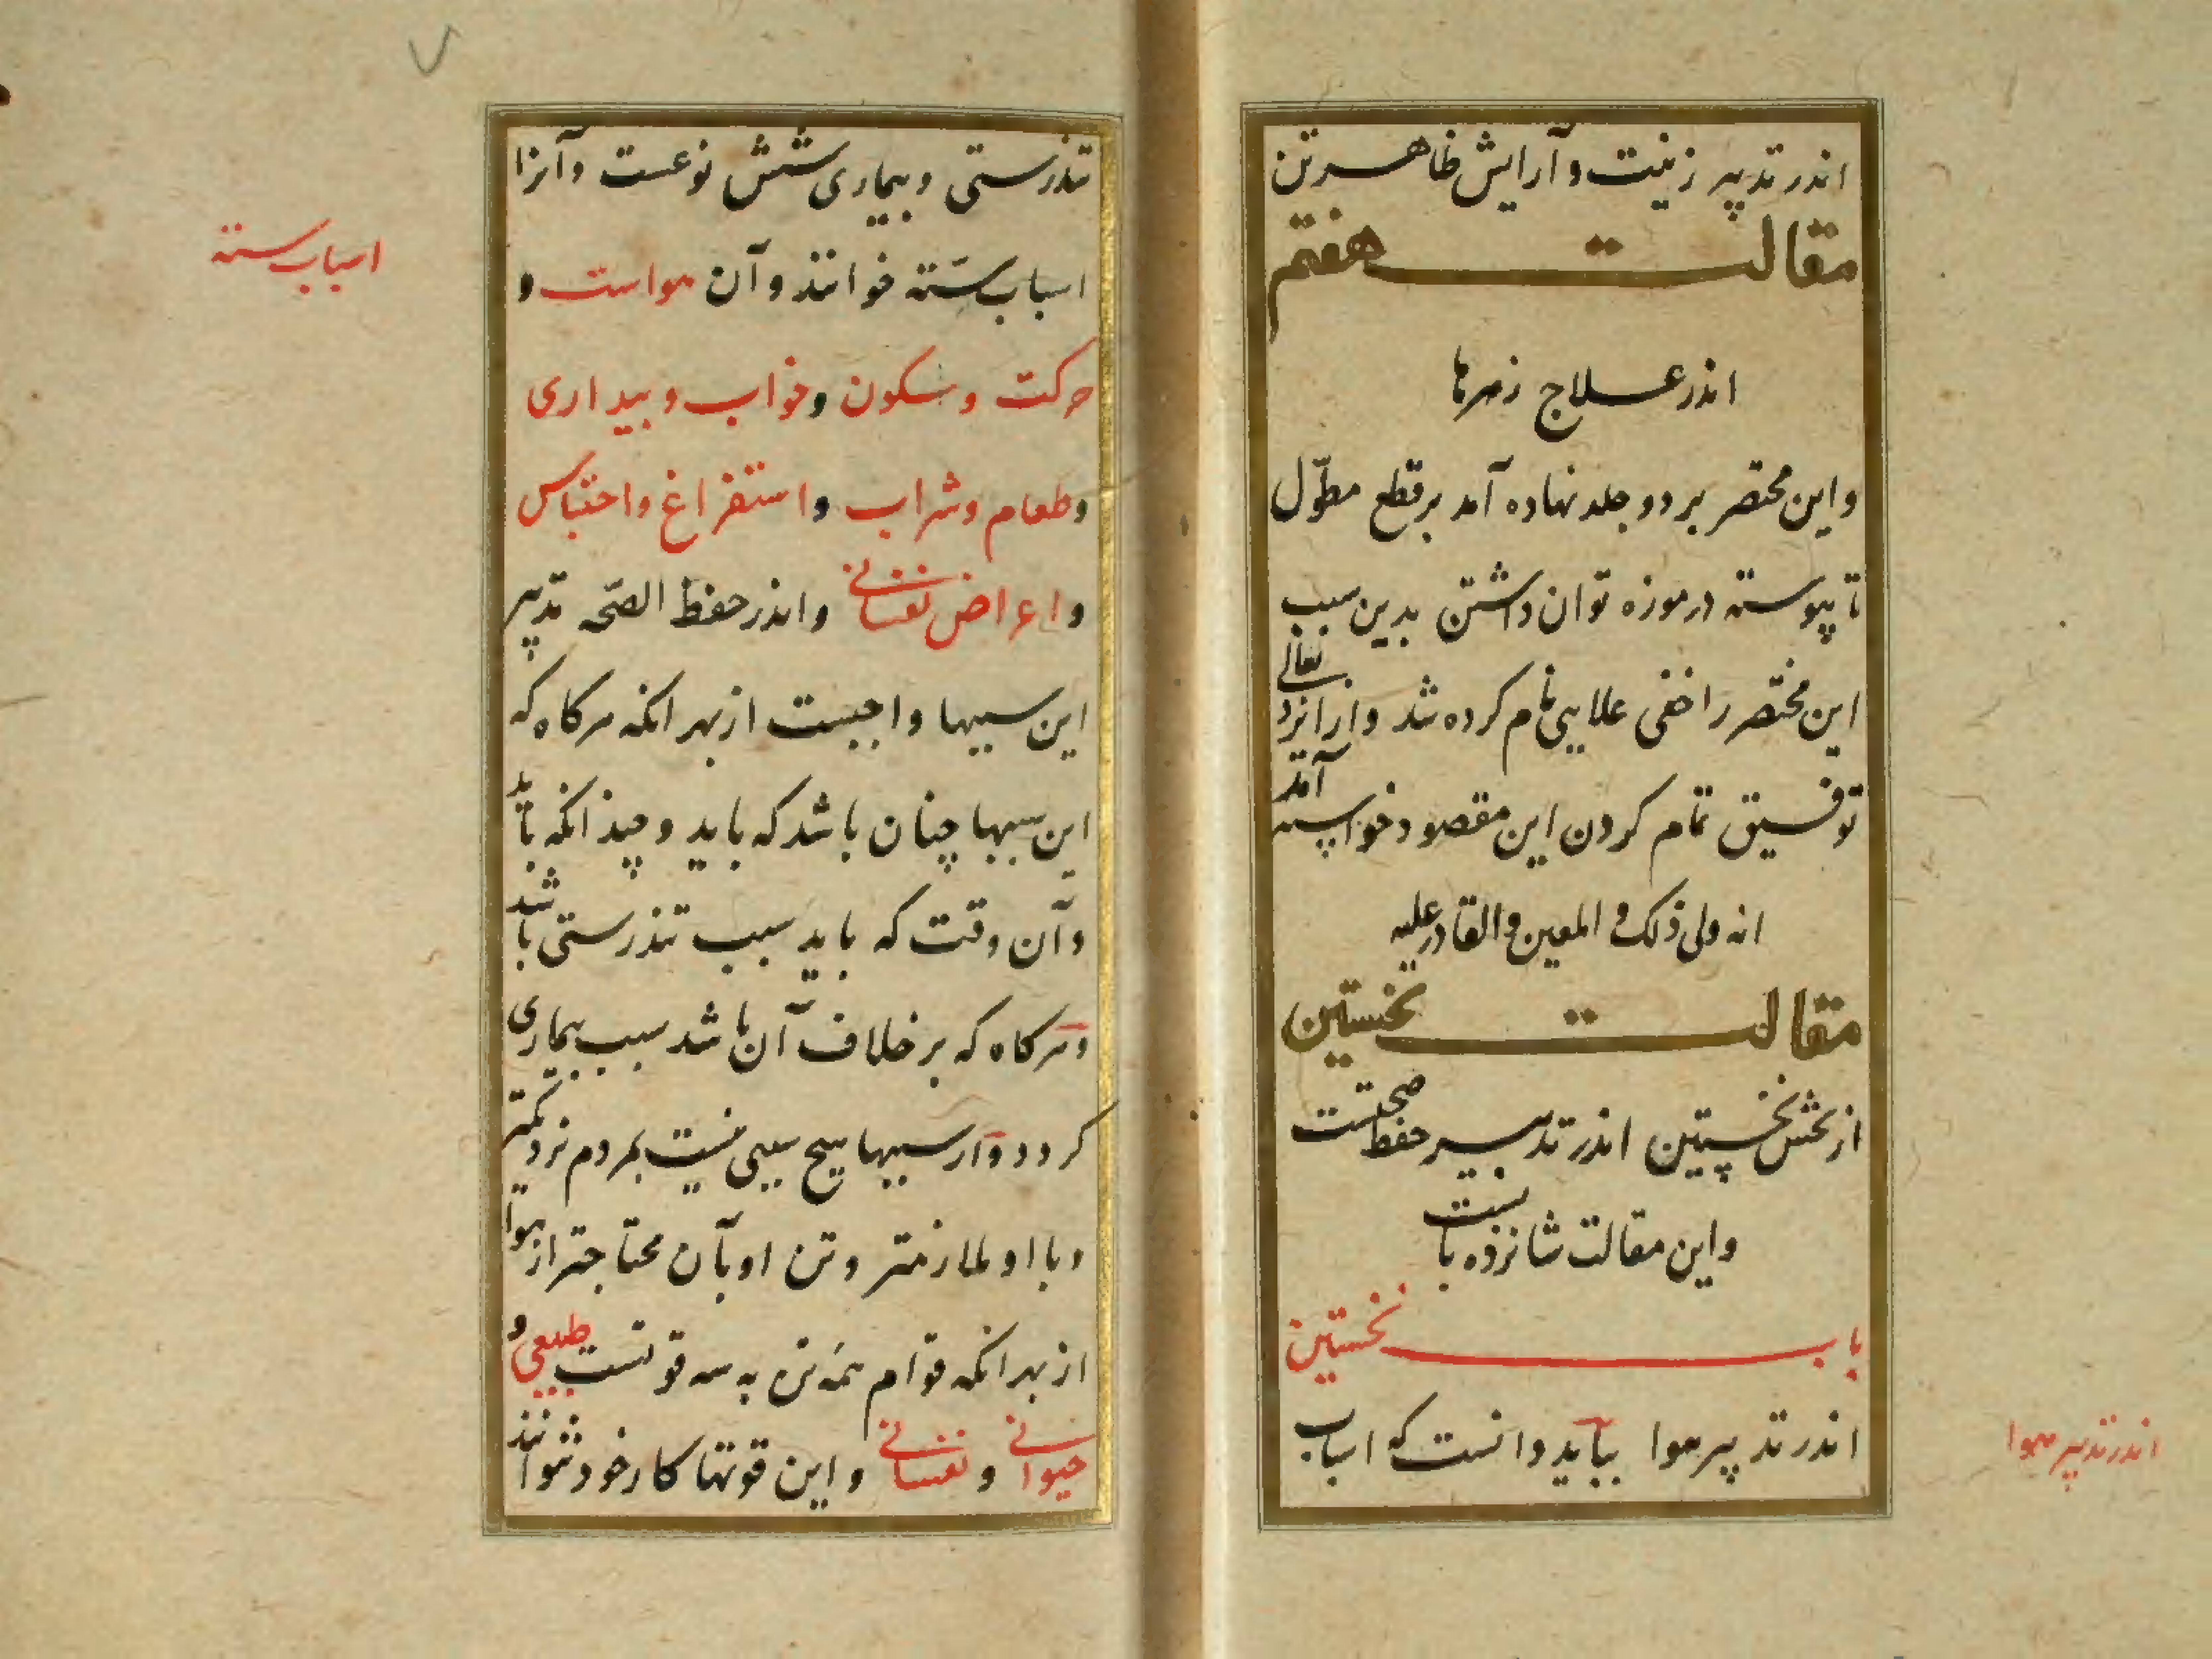 اندر تدبیر زینت و آرایش ظاهر تن
مقالت هفتم
اندر علاج زهرها
و این مختصر بر دو جلد نهاده آمد بر قطع مطوّل
تا پیوسته در موزه توان داشتن بدین سبب
این مختصر را خفی علایی نام کرده شد و از ایزد تعالی
توفیق تمام کردن این مقصود خواسته آمد
انه ولی ذلک و المعین و القادر علیه
مقالت نخستین
از بخش نخستین اندر تدبیر حفظ صحتست
و این مقالت شانزده بابست
باب نخستین
اندر تدبیر هوا بباید دانست که اسباب
اندر تدبیر هوا
تندرستی و بیماری شش نوعست و آنرا
اسباب ستّه خوانند و آن هواست و
حرکت و سکون و خواب و بیداری
و طعام و شراب و استفراغ و احتباس
و اعراض نفسانی و اندر حفظ الصحّه تدبیر
این سببها واجبست از بهر انکه هرکاه که
این سببها چنان باشد که باید و چندانکه باید
و آن وقت که باید سبب تندرستی باشد
و هرکاه که بر خلاف آن باشد سبب بیماری
کردد و از سببها هیچ سببی نیست بمردم نزدیکتر
و با او ملازمتر و تن او بآن محتاجتر از هوا
از بهر انکه قوام همه تن به سه قوتست طبیعی و
حیوانی و نفسانی و این قوتها کار خود نتوانند
اسباب سته